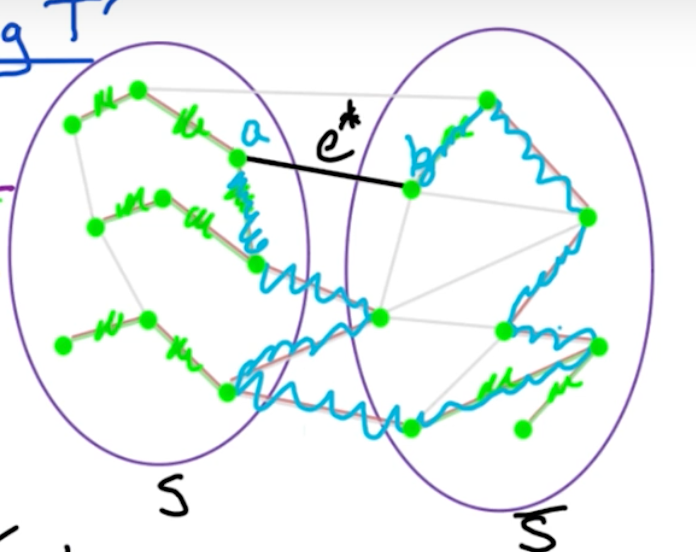 g T'
a
e*
b
S
S̅